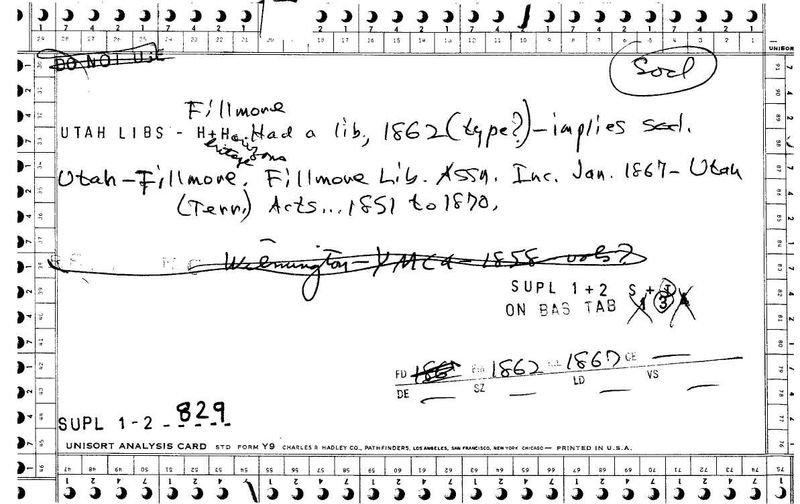 DO NOT USE
Socl
Fillmore
UTAH LIBS - H+H Had a lib, 1862 (type?) - implies socl.
Utah - Fillmore. Fillmore Lib. Assn. Inc. Jan. 1867 - Utah
(Terr.) Acts... 1851 to 1870.
Wilmington - YMCA - 1858 - vols?
SUPL 1+2 S + I
ON BAS TAB 1 3
FD 186 1862 1867 CE
DE SZ LD VS
SUPL 1-2 - 829
UNISORT ANALYSIS CARD STD FORM Y9 CHARLES R HADLEY CO., PATHFINDERS, LOS ANGELES, SAN FRANCISCO, NEW YORK CHICAGO — PRINTED IN U.S.A.